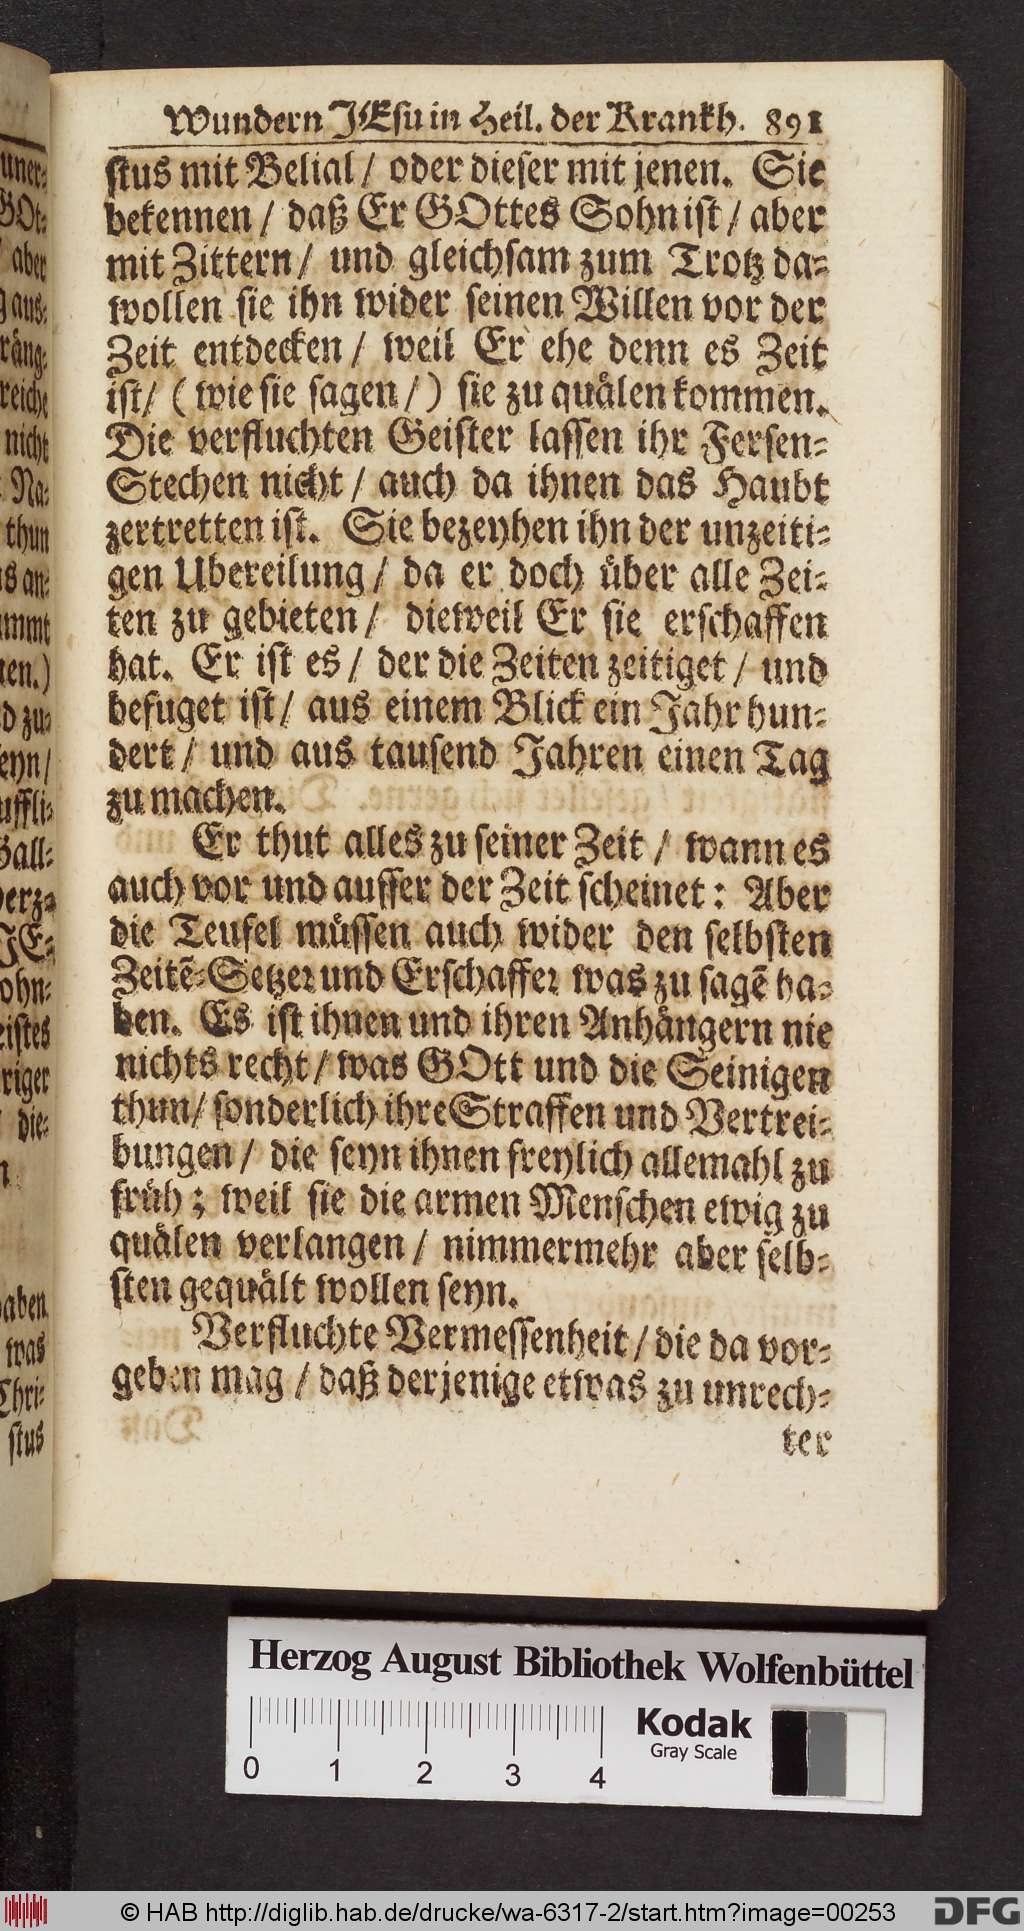 Wundern JEsu in Heil. der Krankh. 891
stus mit Belial / oder dieser mit jenen. Sie
bekennen / daß Er GOttes Sohn ist / aber
mit Zittern / und gleichsam zum Trotz da-
wollen sie ihn wider seinen Willen vor der
Zeit entdecken / weil Er ehe denn es Zeit
ist / ( wie sie sagen / ) sie zu quälen kommen.
Die verfluchten Geister lassen ihr Fersen-
Stechen nicht / auch da ihnen das Haubt
zertretten ist. Sie bezeyhen ihn der unzeiti-
gen Ubereilung / da er doch über alle Zei-
ten zu gebieten / dieweil Er sie erschaffen
hat. Er ist es / der die Zeiten zeitiget / und
befuget ist / aus einem Blick ein Jahrhun-
dert / und aus tausend Jahren einen Tag
zu machen.
Er thut alles zu seiner Zeit / wann es
auch vor und ausser der Zeit scheinet : Aber
die Teufel müssen auch wider den selbsten
Zeitē-Setzer und Erschaffer was zu sagē ha-
ben. Es ist ihnen und ihren Anhängern nie
nichts recht / was GOtt und die Seinigen
thun / sonderlich ihre Straffen und Vertrei-
bungen / die seyn ihnen freylich allemahl zu
früh ; weil sie die armen Menschen ewig zu
quälen verlangen / nimmermehr aber selb-
sten gequält wollen seyn.
Verfluchte Vermessenheit / die da vor-
geben mag / daß derjenige etwas zu unrech-
ter
uner-
GOt-
aber
aus-
reiche
nicht
Na-
thun
an-
zu-
eyn /
JE-
riger
die-
haben
was
Chri-
stus
Herzog August Bibliothek Wolfenbüttel
0 1 2 3 4
Kodak
Gray Scale
© HAB http://diglib.hab.de/drucke/wa-6317-2/start.htm?image=00253
DFG